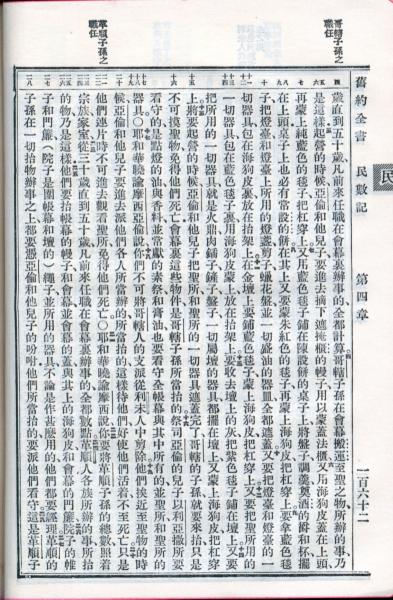 民
舊約全書 民數記 第四章 一百六十二
哥轄子孫之職任
歲直到五十歲凡前來任職在會幕裏辦事的全都計算哥轄子孫在會幕搬運至聖之物所辦的事乃
是這樣起營的時候亞倫和他兒子要進去摘下遮掩櫃的幔子用以蒙蓋法櫃又用海狗皮蓋在上頭
再蒙上純藍色的毯子把杠穿上又用藍色毯子鋪在陳設餅的桌子上將盤子調羹奠酒的爵和杯擺
在上頭桌子上也必有常設的餅在其上又要蒙朱紅色的毯子再蒙上海狗皮把杠穿上要拿藍色毯
子把燈臺和燈臺上所用的燈盞剪子蠟花盤並一切盛油的器皿全都遮蓋又要把燈臺和燈臺的一
切器具包在海狗皮裏放在抬架上在金壇上要鋪藍色毯子蒙上海狗皮把杠穿上又要把所用的
一切器具包在藍色毯子裏用海狗皮蒙上放在抬架上要收去壇上的灰把紫色毯子鋪在壇上又要
把所用的一切器具就是火鼎肉鍤子鏟子盤子一切屬壇的器具都擺在壇上又蒙上海狗皮把杠穿
上將要起營的時候亞倫和他兒子把聖所和聖所的一切器具遮蓋完了哥轄的子孫就要來抬只是
不可摸聖物免得他們死亡會幕裏這些物件是哥轄子孫所當抬的祭司亞倫的兒子以利亞撒所要
看守的是點燈的油與香料並當獻的素祭和膏油也要看守全帳幕與其中所有的並聖所和聖所的
器具○耶和華曉諭摩西亞倫說你們不可將哥轄人的支派從利未人中剪除他們挨近至聖物的時
候亞倫和他兒子要進去派他們各人所當辦的所當抬的這樣待他們好使他們活着不至死亡只是
他們連片時不可進去觀看聖所免得他們死亡○耶和華曉諭摩西說你要將革順子孫的總數照着
革順子孫之職任
宗族家室從三十歲直到五十歲凡前來任職在會幕裏辦事的全都數點革順人各族所辦的事所抬
的物乃是這樣他們要抬帳幕的幔子和會幕並會幕的蓋與其上的海狗皮和會幕的門簾院子的帷
子和門簾(院子是圍帳幕和壇的)繩子並所用的器具不論是作甚麼用的他們都要經理革順的
子孫在一切抬物辦事之上都要憑亞倫和他兒子的吩咐他們所當抬的要派他們看守這是革順子